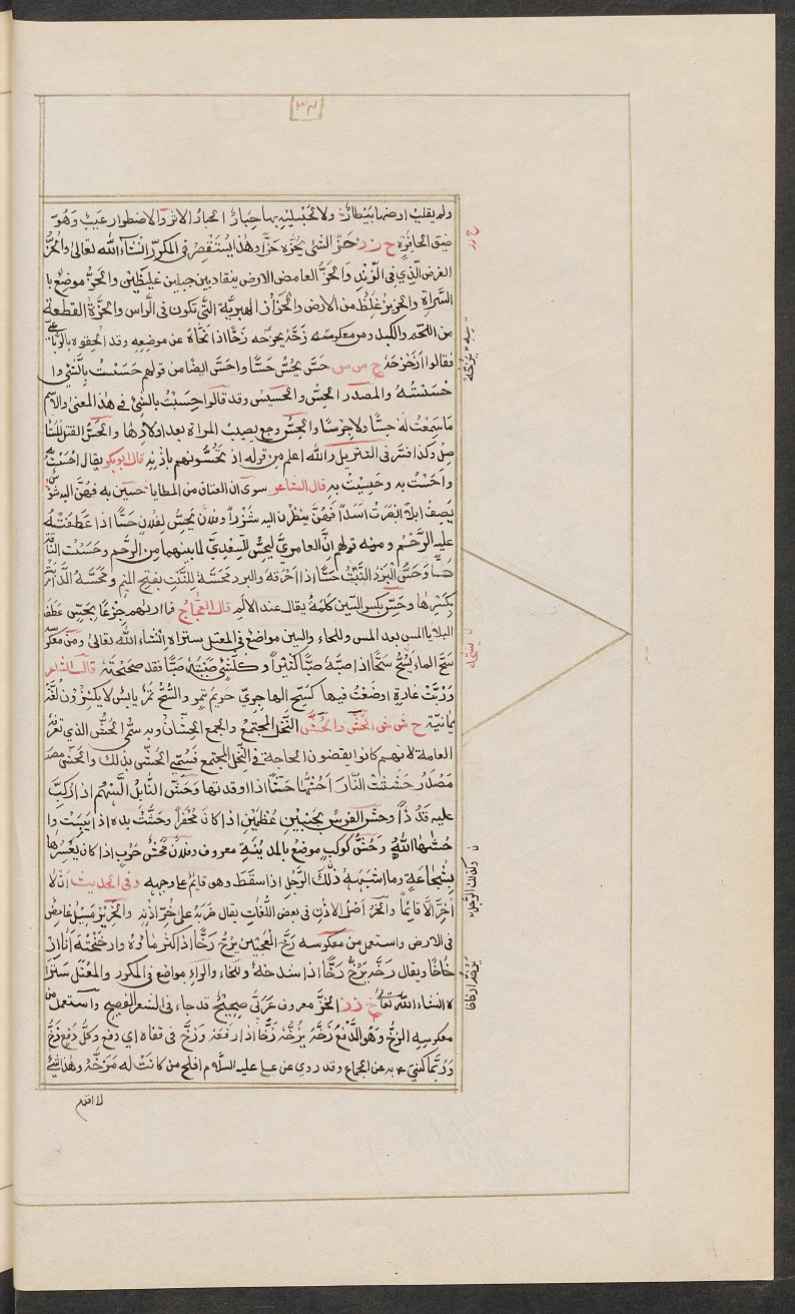 ٣٧
ولم يقلب ارضها بيطار ولا لحبليه بها حبار الحبار الاثر والاضطرار عيب وهو
ضيق الحافرة ح ز ز حز الشئ يحزه حزا وهذا يستقصى فى المكرر انشاءالله تعالى والحز
الفرض الذي فى الزند والحز الغامض من الارض ينقاد بين جبلين غليظين والحز موضع با
السراة والحزيز غلظ من الارض والحزاز الهبرية التى تكون فى الراس والحزة القطعة
من اللحم والكبد ومن معكوسه زحه يزحه زحا اذا نحاه عن موضعه وقد الحقوه بالرباعي
فقالوا زحزحه ح س س حس يحس حسا واحس ايضا من قولهم حسست بالشئ وا
حسسته والمصدر الحس والحسيس وقد قالوا حسيت بالشئ فى هذا المعنى والاسم
ما سمعت له حسا ولا جرسا والحس وجع يصيب المراة بعد اولادها والحس القتل المستا
صل وكذا فسر فى التنزيل والله اعلم من قوله اذ تحسونهم باذنه قال ابو بكر يقال احسست به
واحست به وحسيت به قال الشاعر سوى ان العتاق من المطايا حسين به فهن اليه شوس
يصف ابلا ابصرت اسدا فهن ينظرن اليه شزرا وفلان يحس لفلان حسا اذا عطفته
عليه الرحم ومنه قولهم ان العامري ليحس للسعدي لما بينهما من الرحم وحسست الناقة
حسا وحس البرد النبت حسا اذا احرقه والبرد محسة للنبت بفتح الميم ومحسة الدابة
بكسرها وحس بكسر السين كلمة يقال عند الالم قال العجاج فما اراهم جزعا بحس عطف
البلايا المس بعد المس وللحاء والسين مواضع فى المعتل ستراه انشاء الله تعالى ومن معكوسه
سح الماء يسح سحا اذا صبه صبا كثيرا وكل شئ صببته صبا فقد سححته قال الشاعر
وربت غارة اوضعت فيها كسح الهاجري جريم تمر والسح تمر يابس لا يكنز ون لغة
يمانية ح ش ش الحش والحش النخل المجتمع والجمع الحشان وبه سمى الحش الذي تعرفه
العامة لانهم كانوا يقضون الحاجة فى النخل المجتمع فسمى الحش بذلك والحش مصد
مصدر حششت النار احشها حشا اذا اوقدتها وحش النابل السهم اذا ركب
عليه قذذا وحش الفرس بجنبين عظمين اذا كان مجفرا وحشت يده اذا يبست وا
حشها الله وحش كوكب موضع بالمدينة معروف وفلان محش حرب اذا كان يسعرها
بشجاعة وما اشبهه ذلك الرجل اذا سقط وهو قائم على وجهه وفى الحديث ان لا
اخر الا قائما والخر اصل الاذن فى بعض اللغات يقال ضربه على خر اذنه والخرير مسيل غامض
فى الارض واستعمل من معكوسه رخ العجين يرخ رخا اذا كثر ماؤه وارخخته انا ار
خاخا ويقال رخه يرخه رخا اذا شدخه وللخاء والراء مواضع فى المكرر والمعتل سترا
ه انشاء الله تعالى خ ز ز الخز معروف عربى صحيح قد جاء فى الشعر الفصيح واستعمل من
معكوسه الزخ وهو الدفع زخه يزخه زخا اذا دفعه وزخ فى قفاه اي دفع وكل دفع زخ
وربما كني به عن الجماع وقد روي عن على عليه السلام افلح من كانت له مزخة وهذا شئ
لا اقدم
ح ز ز
يزحه
يسحه
وكذلك الرجل